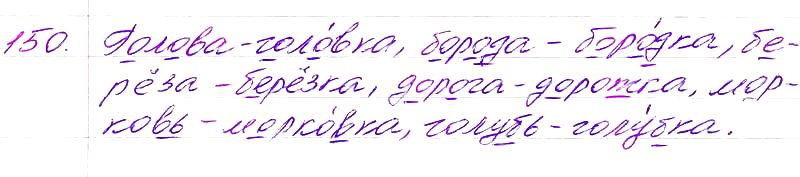 150. Голова – голо́вка, борода – боро́дка, бе-
рёза – берёзка, дорога – дорожка, мор-
ковь – морко́вка, голубь – голу́бка.